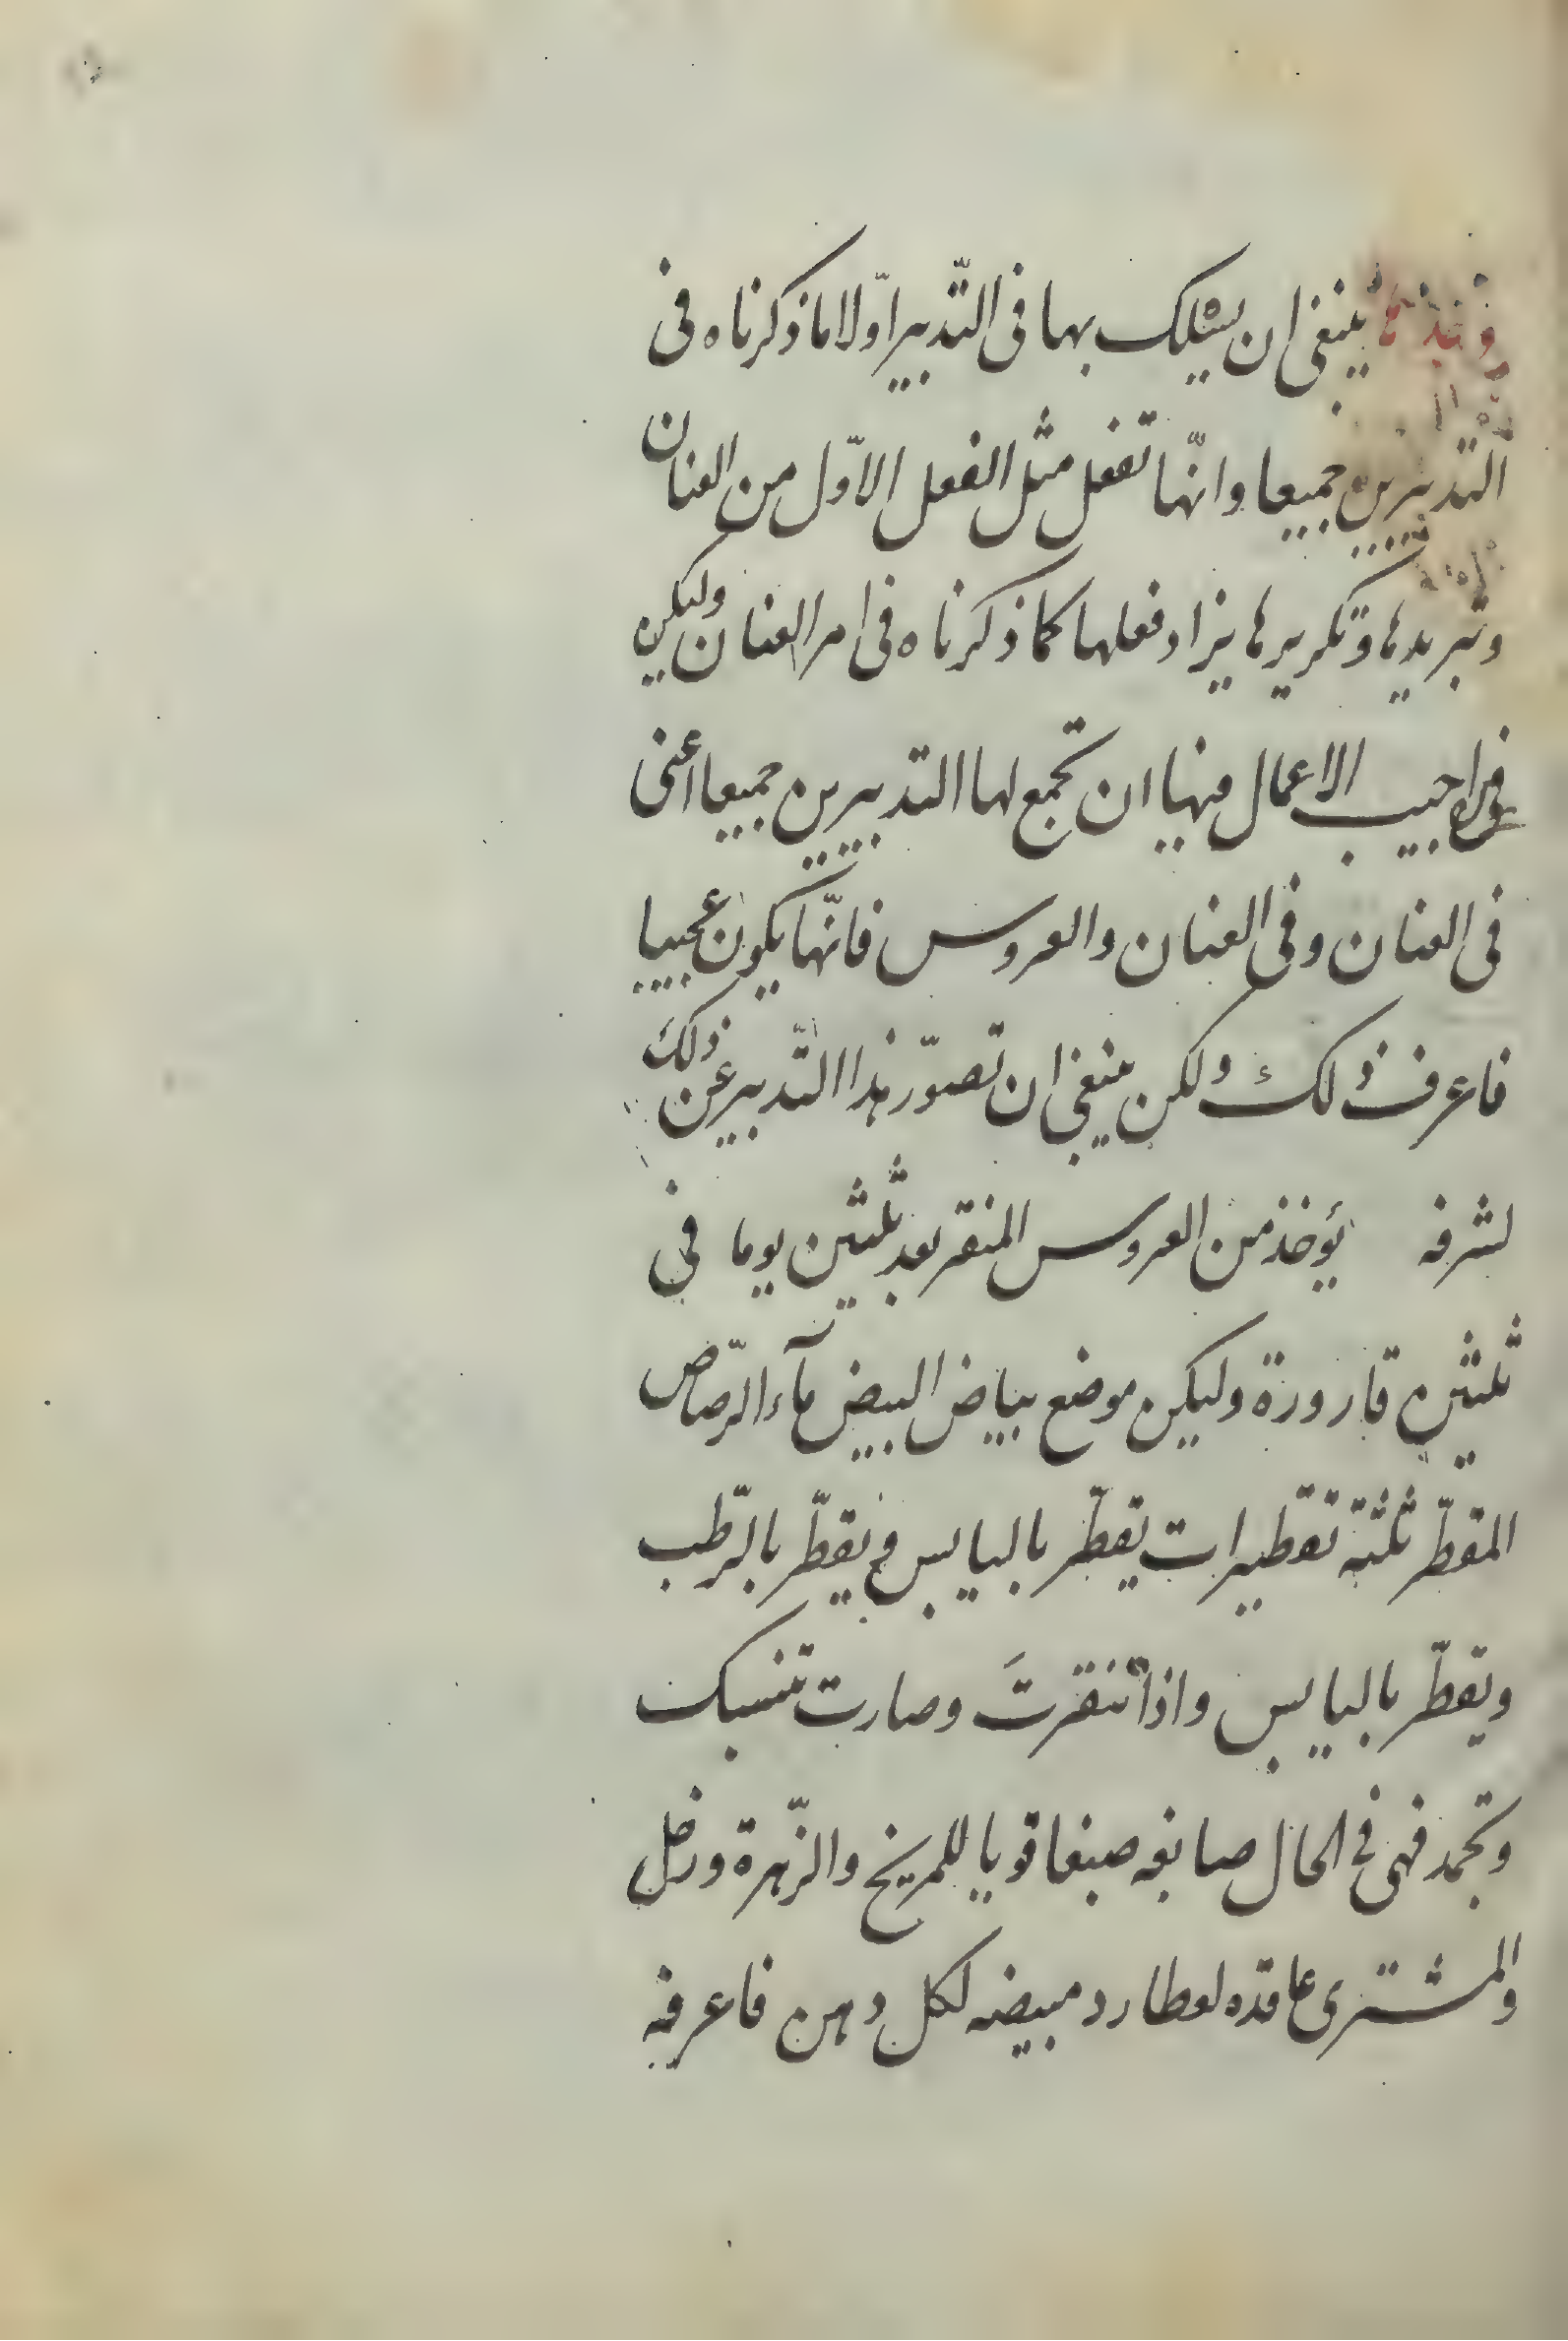 ينبغى ان يسلك بها فى التّدبير اوّلا ما ذكرناه فى
التدبيرين جميعا وانّها تفعل مثل الفعل الاوّل من العنان
وتبريدها وتكريرها يزاد فعلها كما ذكرناه فى امر العنان وليكن
الاعمال فيها ان تجمع لها التدبيرين جميعا اعنى
فى العنان وفى العنان والعروس فانّها يكون عجيبا
فاعرف ذلك ولكن ينبغى ان تصوّر هذا التّدبير عن ذلك
لشرفه يؤخذ من العروس المنقر بعد ثلثين يوما فى
ثلثين قارورة وليكن موضع بياض البيض مآء الرّصاص
المقطّر ثلثة تقطيرات يقطّر باليابس ويقطّر بالرّطب
ويقطّر باليابس واذا تنقرت وصارت تنسبك
وتجمد فهى فى الحال صابغه صبغا قويا للمريخ والزّهرة وزحل
والمشترى عاقده لعطارد مبيضه لكل دهن فاعرفه